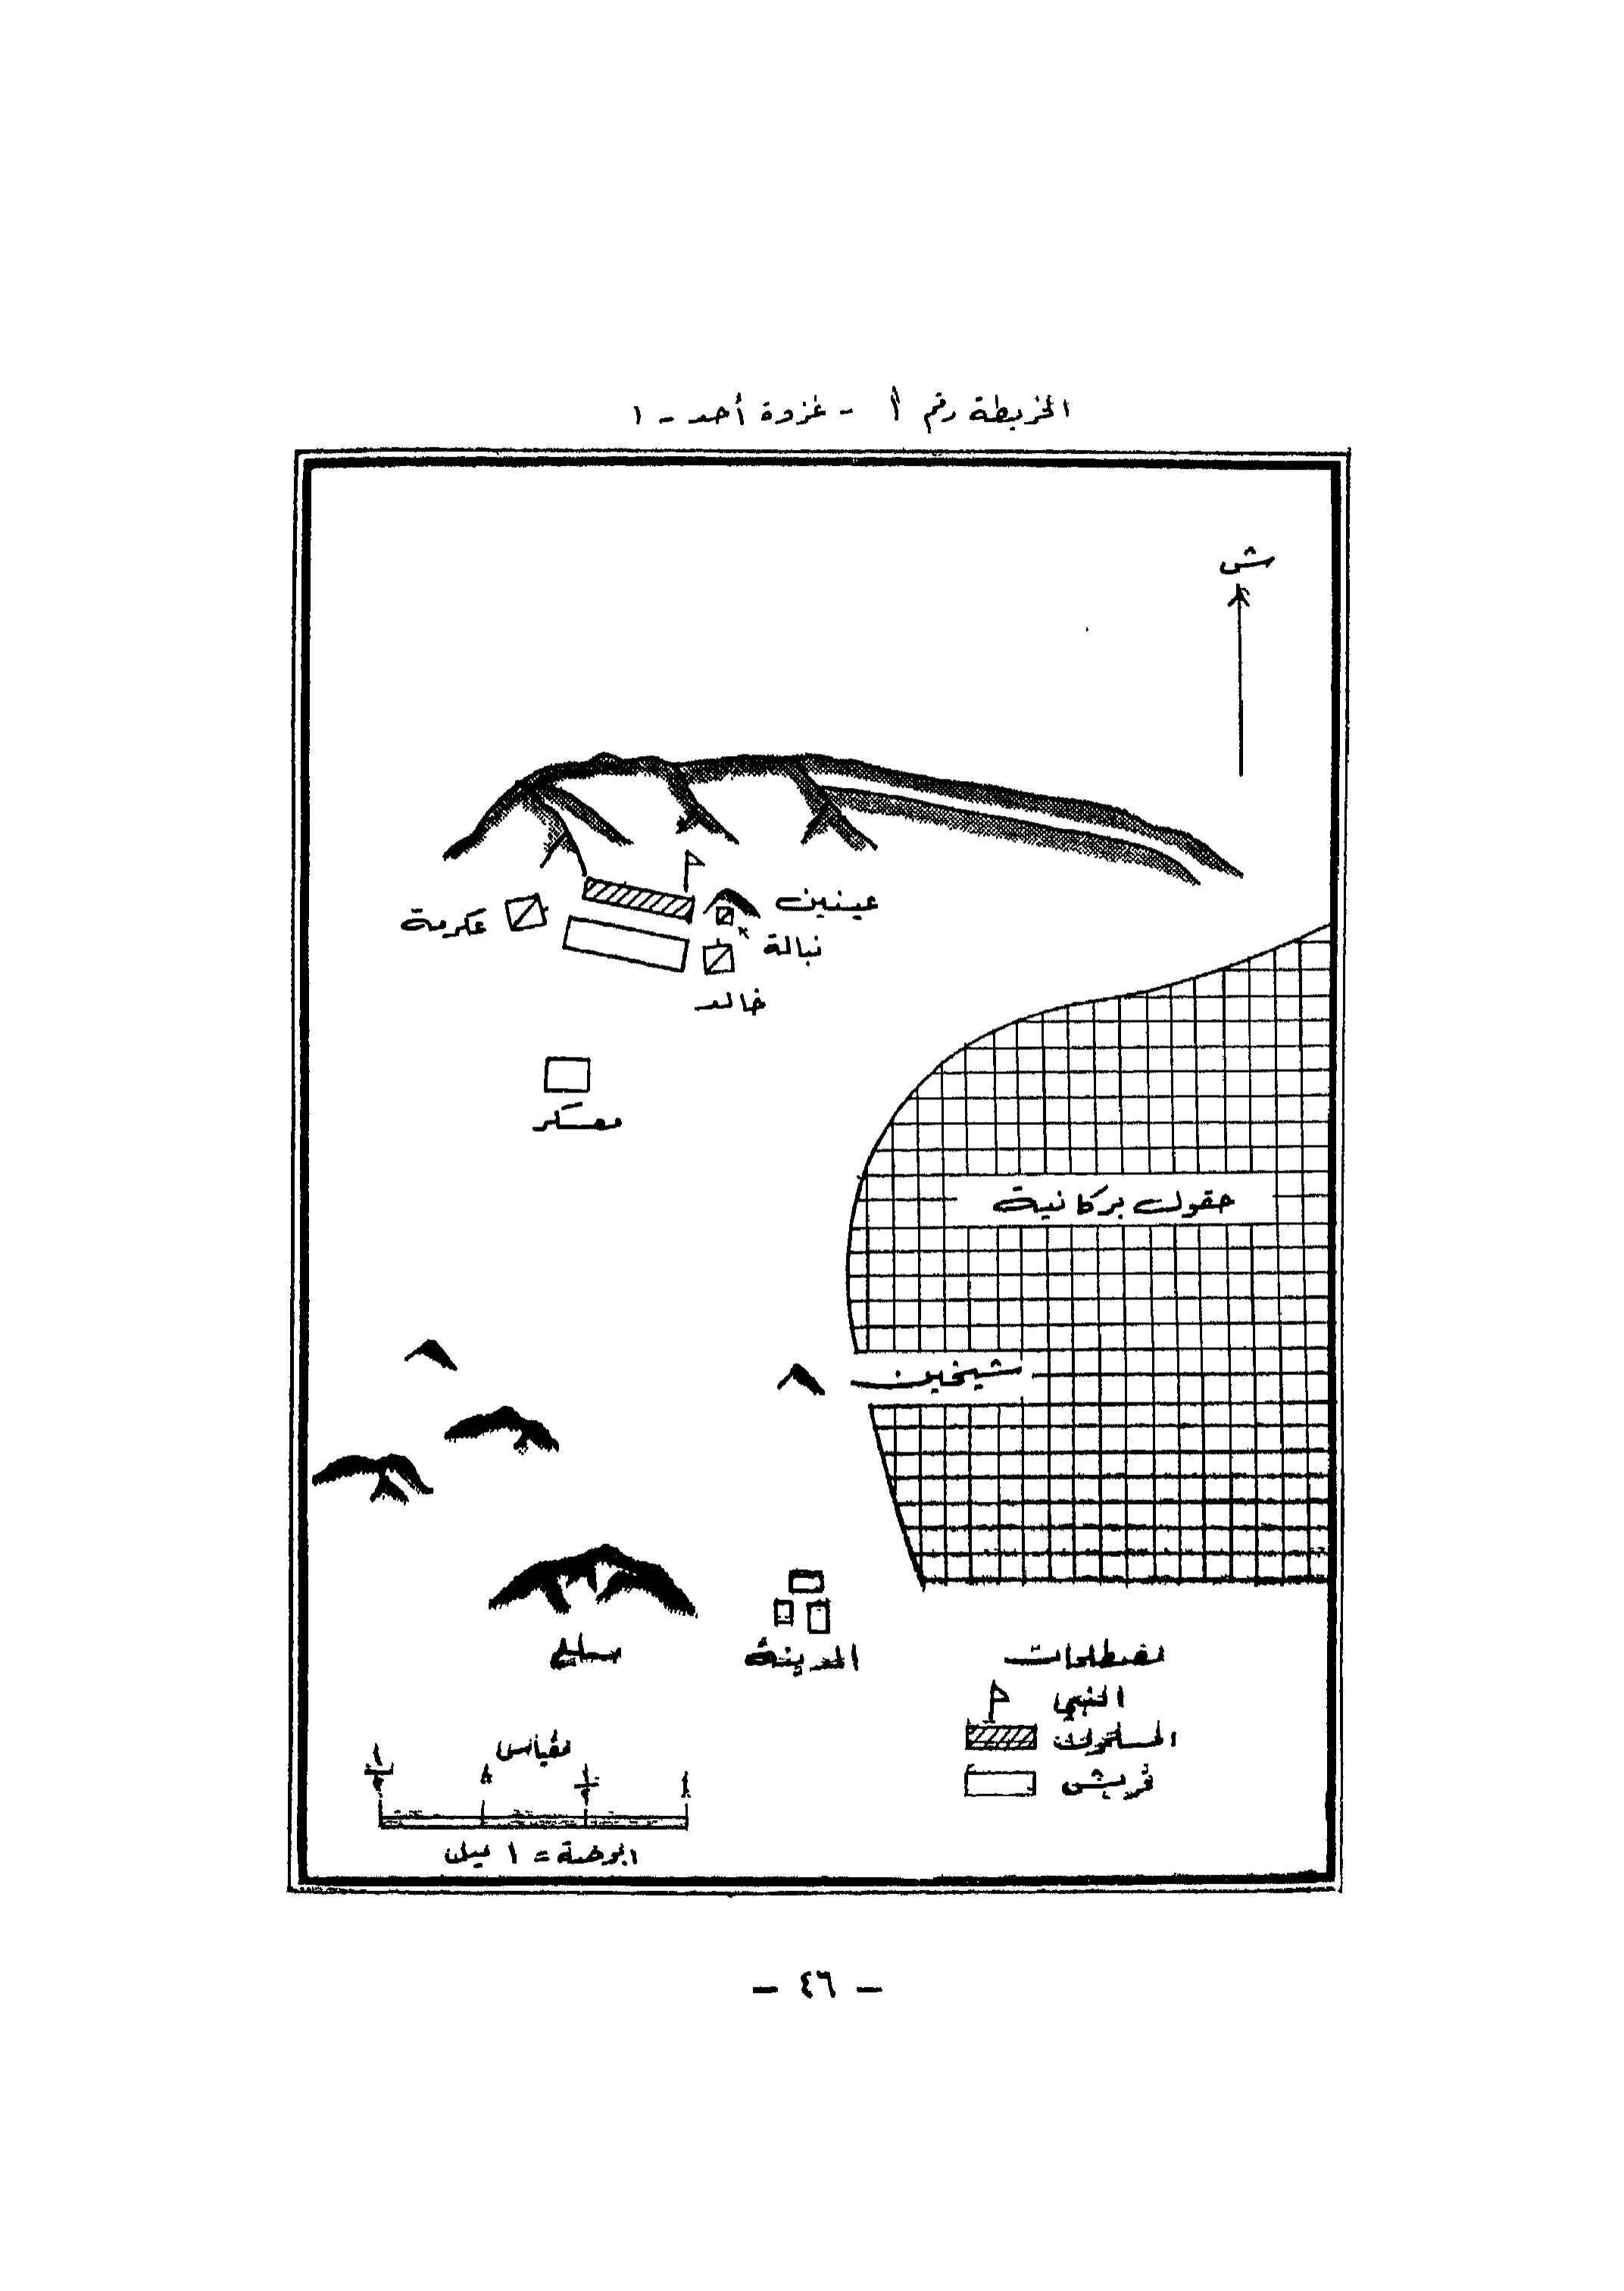 الخريطة رقم أ - غزوة أحد - ١
ش
عينين
عكرمة
نبالة
خالد
معسكر
حقول بركانية
شيخين
سلع
المدينة
مصطلحات
النبي
المسلمون
قريش
مقياس
١ ١/٢ ١
ابوصة = ١ ميل
- ٤٦ -